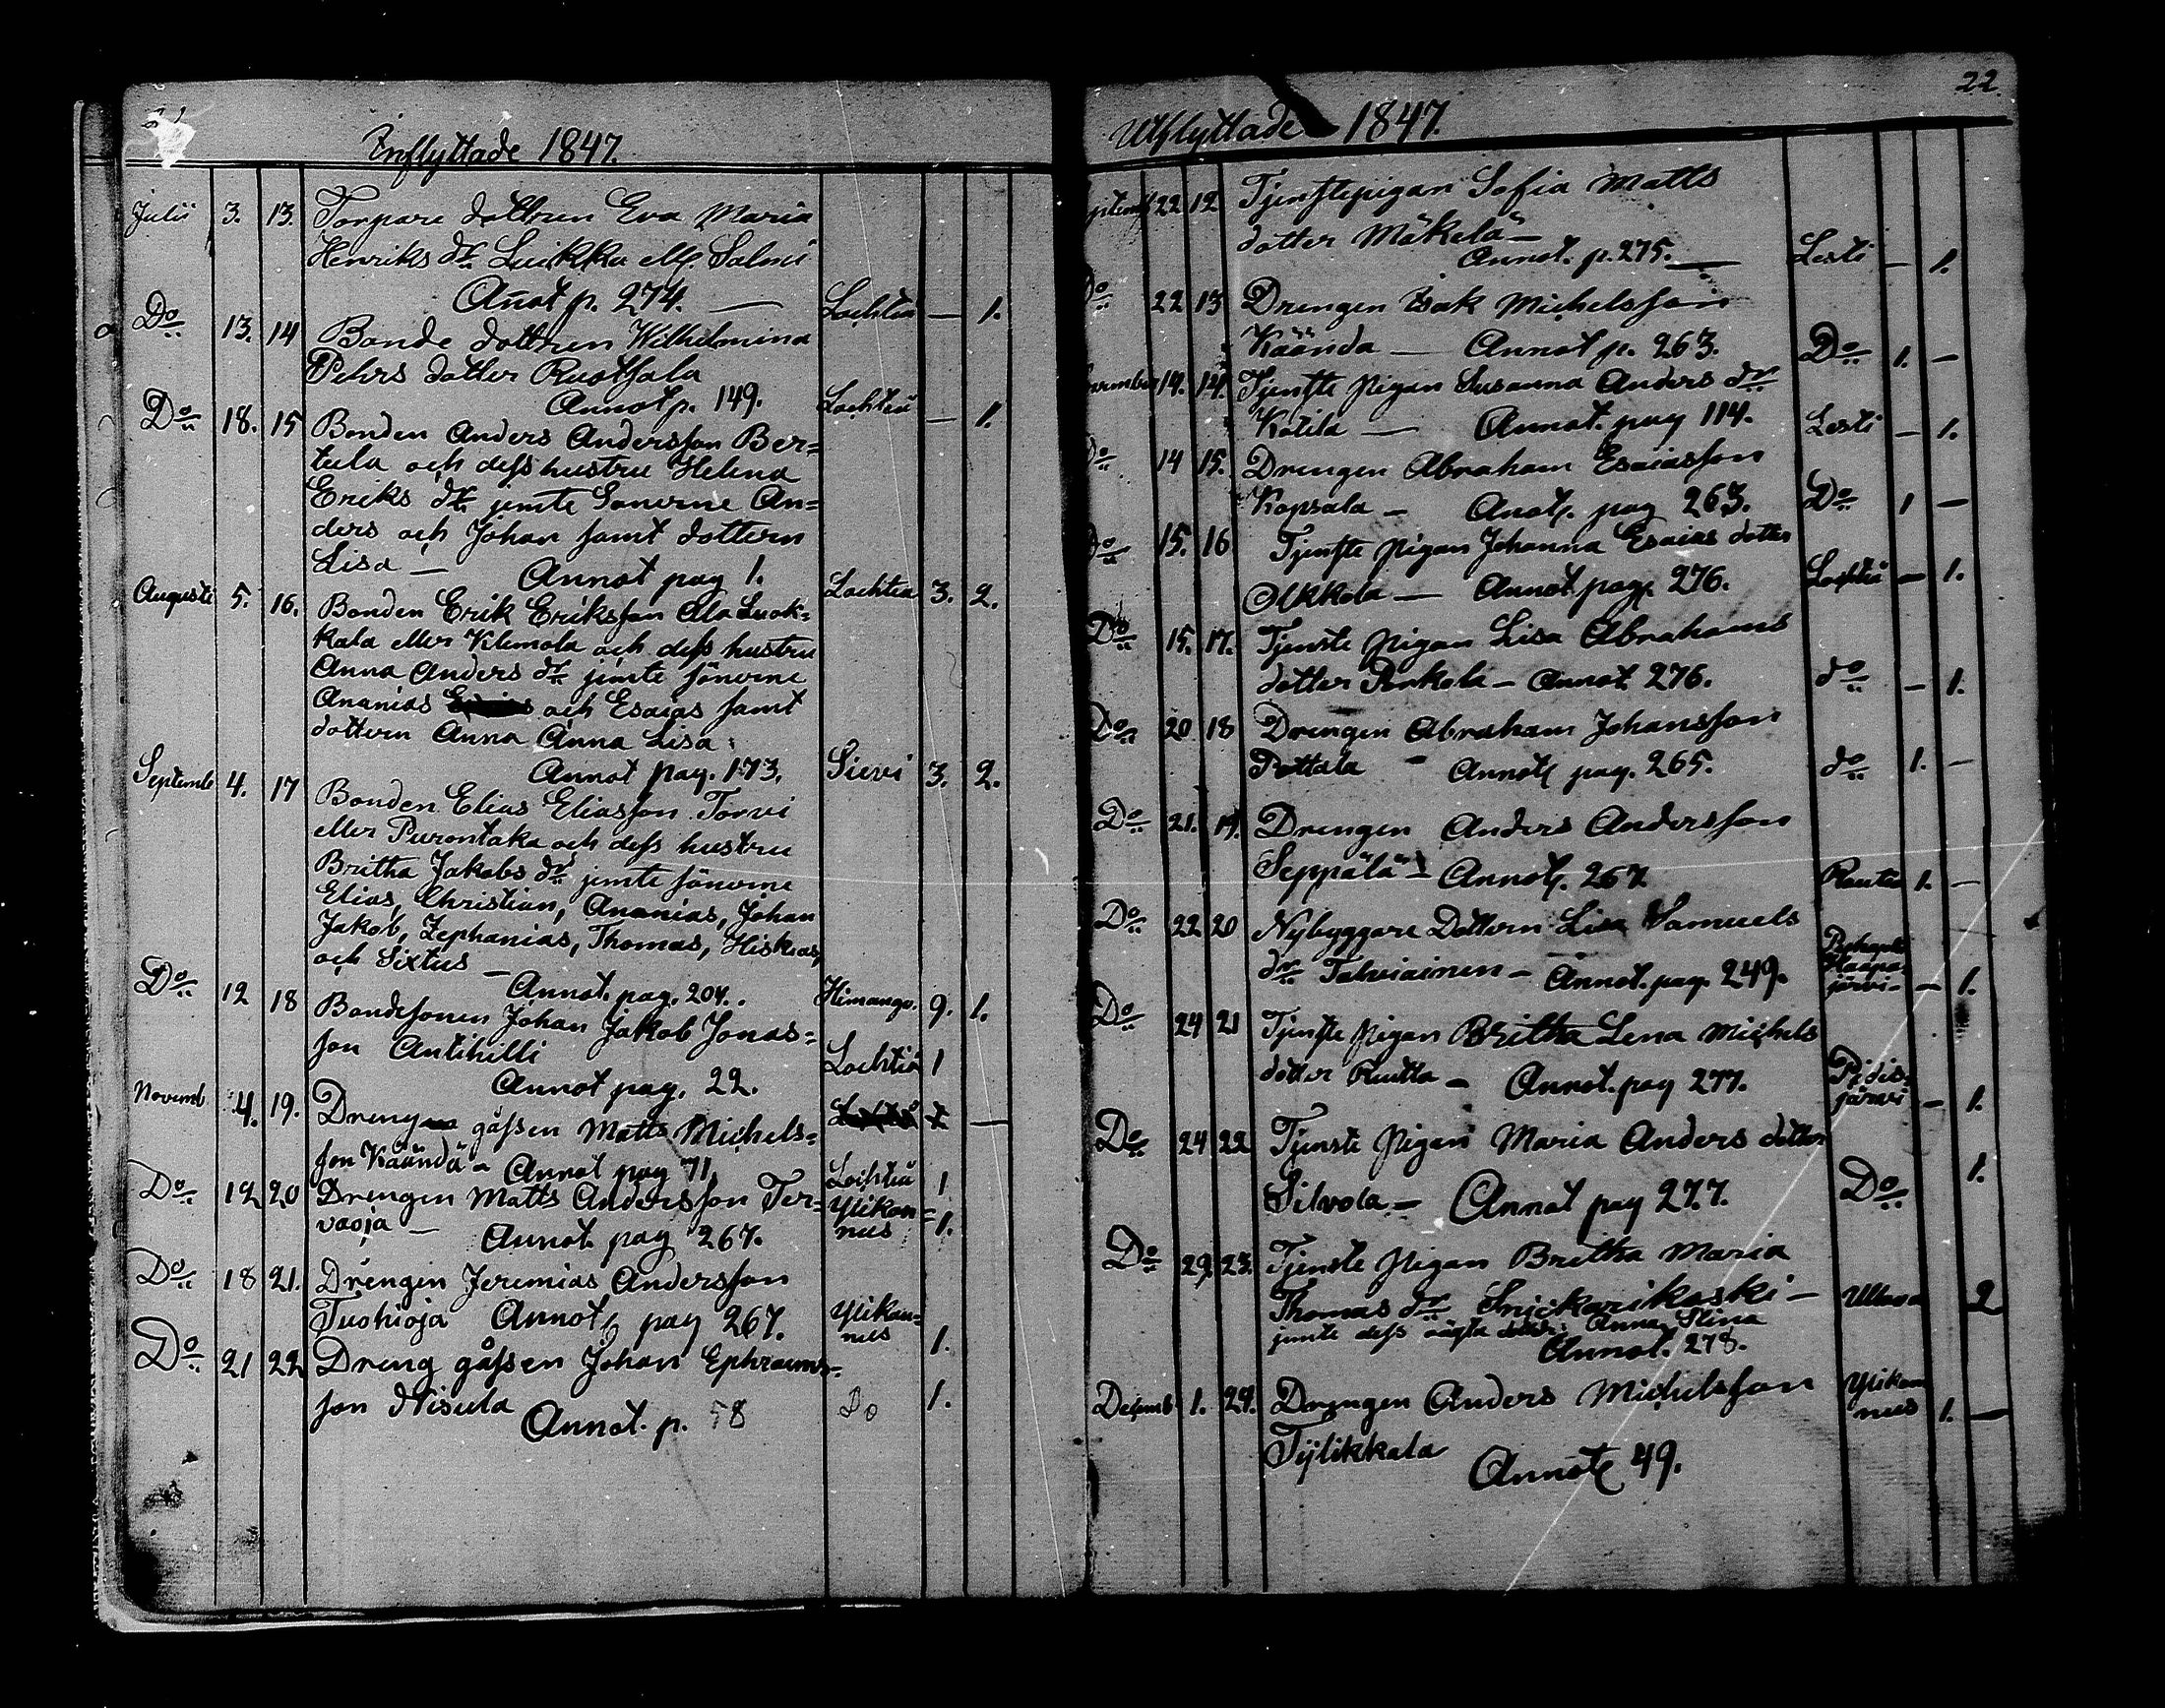 Inflyttade 1847.
Julii 3. 13. Torpare dottren Eva Maria
Henriks dr Luikku ell. Salmi
Anot p. 274. — Lochteå — 1.
Do 13. 14 Bonde dottren Wilhelmina
Pehrs dotter Ruotsala
Annot p. 149. Lochteå — 1.
Do 18. 15 Bonden Anders Andersson Ber=
tula och dess hustru Helena
Eriks dr jemte Sönerne An=
ders och Johan samt dottern
Lisa — Annot pag 1. Lochtea 3. 2.
Augusti 5. 16. Bonden Erik Eriksson Ala Luok=
kala eller Klemola och dess hustru
Anna Anders dr jemte sönerne
Ananias och Esaias samt
dottern Anna Anna Lisa
Annot pag. 173. Sievi 3. 2.
Septembr 4. 17 Bonden Elias Eliasson Torvi
eller Purontaka och dess hustru
Britha Jakobs dr jemte sönerne
Elias, Christian, Ananias, Johan
Jakob, Zephanias, Thomas, Hiskias,
och Sixtus —
Annot. pag. 204. Himango. 9. 1.
Do 12 18 Bondesonen Johan Jakob Jonas=
son Antihilli Lochteå 1
Annot pag. 22.
Novemb. 4. 19. Dreng gåssen Matts Michels= —
son Käändä - Annot pag 71 Lochteå 1
Do 12 20 Drengen Matts Andersson Ter=
vaoja — Annot pag 267. Ylikan=
nus 1.
Do 18 21. Drengen Jeremias Andersson
Tuohioja Annot, pag 267. Ylikan=
nus 1.
Do 21 22 Dreng gåssen Johan Ephraims=
son Nisula Do 1.
Annot. p. 58
22.
Utflyttade 1847.
22 12 Tjenstepigan Sofia Matts
dotter Mäkelä —
Annot. p. 275. — Lesti — 1.
Do 22 13 Drengen Isak Michelsson
Käända — Annot p. 263. Do 1. —
14. 14. Tjenste pigan Susanna Anders dr
Kotila — Annot. pag 114. Lesti — 1.
Do 14 15. Drengen Abraham Esaiasson
Kopsala — Anot. pag 263. Do 1 —
Do 15. 16 Tjenste pigan Johanna Esaias dotter
Olkkola — Annot pag. 276. Lochteå — 1.
Do 15. 17. Tjenste pigan Lisa Abrahams
dotter Porkola — Annot 276. do — 1.
Do 20 18 Drengen Abraham Johansson
Pottala - Annot pag. 265. do 1. —
Do 21. 19. Drengen Anders Andersson
Seppälä — Annot. 267. Rautio 1. —
Do 22 20 Nybyggare Dottern Lisa Samuels
dr Talviainen — Annot. pag. 249.
Haapa=
järvi — 1.
Do 24 21 Tjenste pigan Britha Lena Michels
dotter Ruutta — Annot. pag 277. Pidis=
järwi — 1.
Do 24 22 Tjenste pigan Maria Anders dotter
Silvola — Annot pag 277. Do 1.
Do 29. 23. Tjenste pigan Britha Maria
Thomas dr Snickarikoski — Ullava 2
jemte dess oägta dotter: Anna Stina
Annot. 278.
Decemb 1. 24. Drengen Anders Michelsson Ylikan
nus 1. —
Tylikkala
Annot 49.